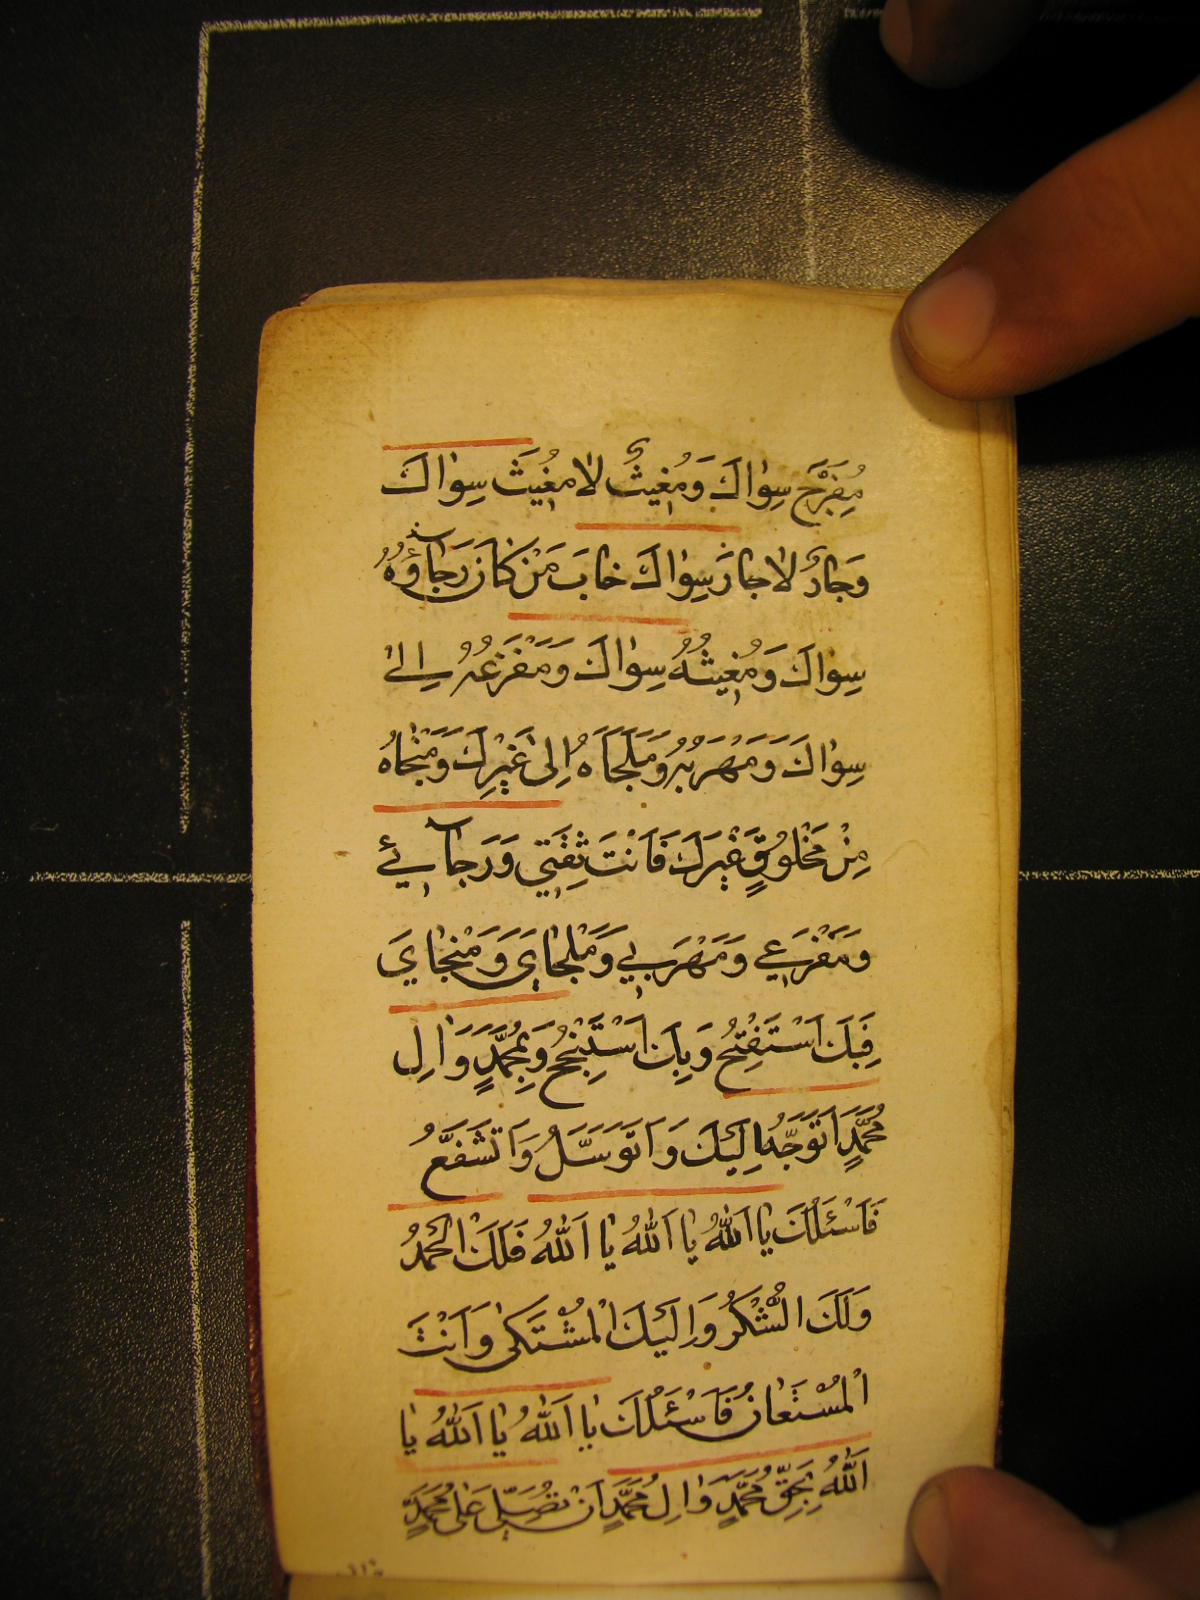 مُفَرِّجَ سِوٰاكَ وَمُغيثٌ لاٰ مُغيثَ سِوٰاكَ
وَجٰارٌ لاٰ جٰارَ سِوٰاكَ خٰابَ مَنْ كٰانَ رَجٰاۤؤُهُ
سِوٰاكَ وَمُغيثُهُ سِوٰاكَ وَمَفْزَعُهُ اِلىٰ
سِوٰاكَ وَمَهْرَبُهُ وَمَلْجَاَهُ اِلىٰ غَيْرِكَ وَمَنْجٰاهُ
مِنْ مَخْلُوقٍ غَيْرِكَ فَاَنْتَ ثِقَتي وَرَجٰاۤئي
وَمَفْزَعي وَمَهْرَبي وَمَلْجٰايَ وَمَنْجٰايَ
فَبِكَ اَسْتَفْتِحُ وَبِكَ اَسْتَنْجِحُ وَبِمُحَمَّدٍ وَاٰلِ
مُحَمَّدٍ اَتَوَجَّهُ اِلَيْكَ وَاَتَوَسَّلُ وَاَتَشَفَّعُ
فَاَسْئَلُكَ يٰا اَللّٰهُ يٰا اَللّٰهُ يٰا اَللّٰهُ فَلَكَ الْحَمْدُ
وَلَكَ الشُّكْرُ وَاِلَيْكَ الْمُشْتَكىٰ وَاَنْتَ
الْمُسْتَعٰانُ فَاَسْئَلُكَ يٰا اَللّٰهُ يٰا اَللّٰهُ يٰا
اَللّٰهُ بِحَقِّ مُحَمَّدٍ وَاٰلِ مُحَمَّدٍ اَنْ تُصَلِّيَ عَلىٰ مُحَمَّدٍ